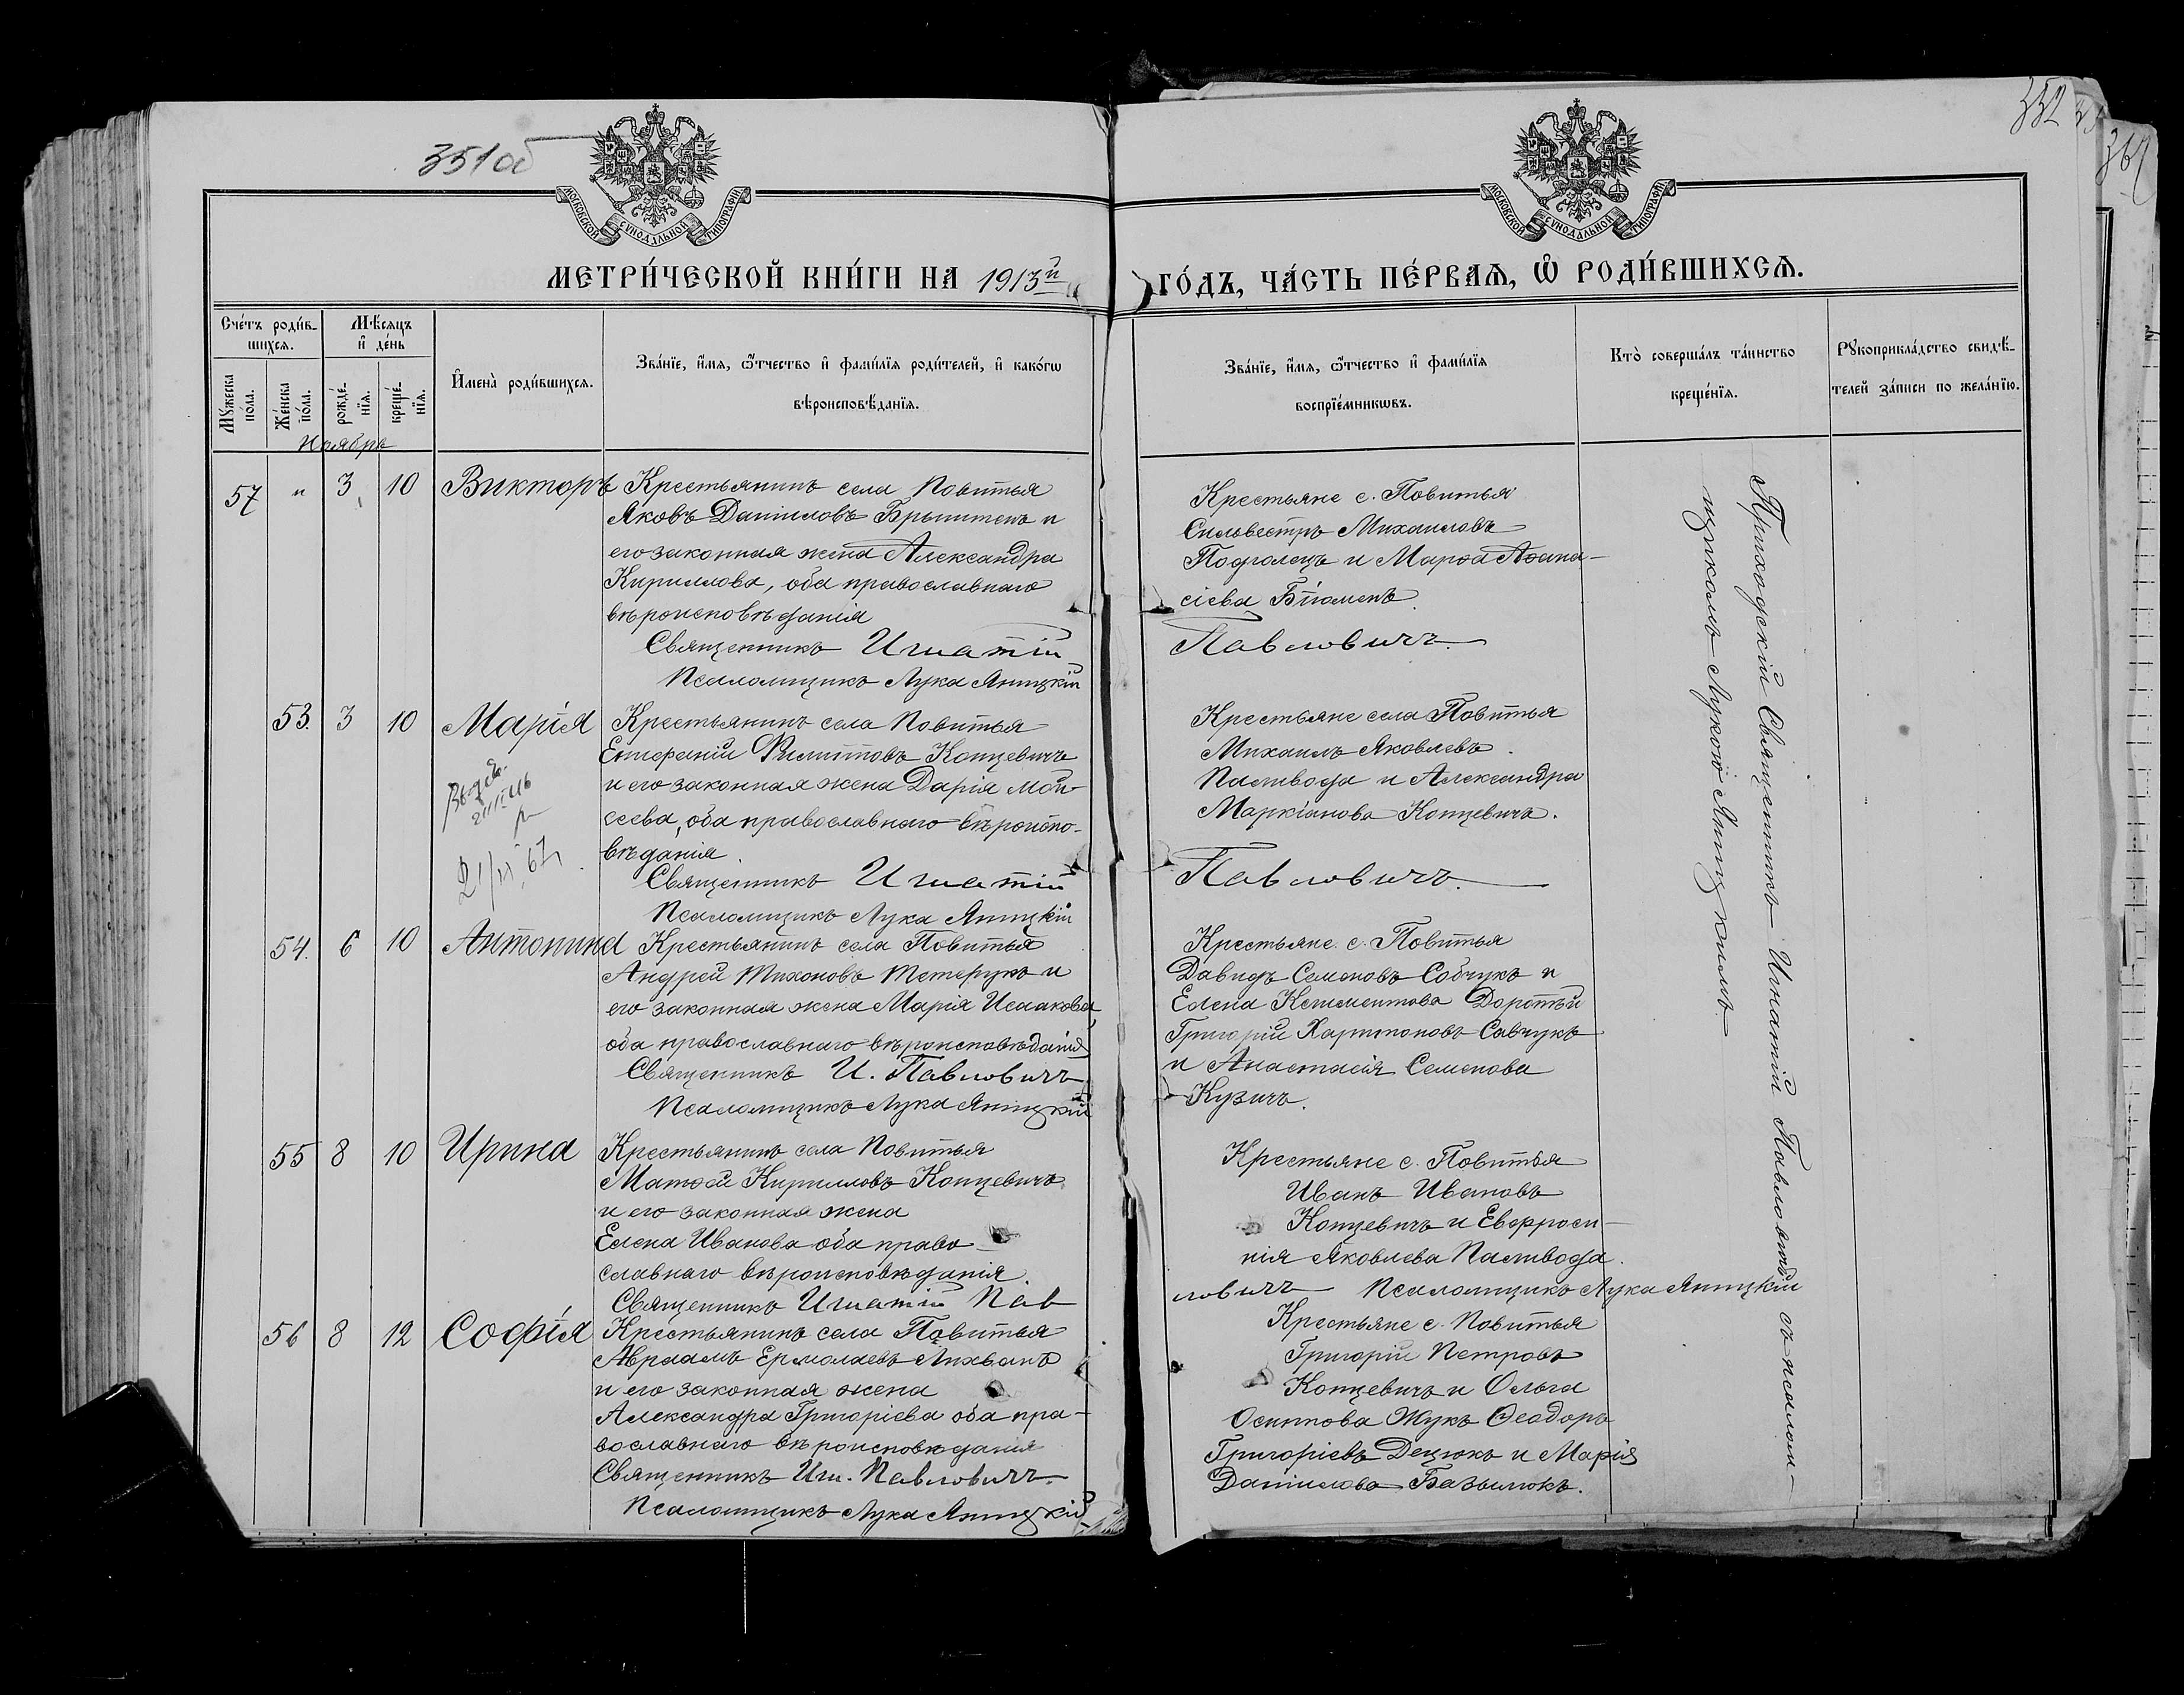 351об
352
МОСКОВСКОЙ СѴНОДАЛЬНОЙ ТИПОГРАФІИ
МОСКОВСКОЙ СѴНОДАЛЬНОЙ ТИПОГРАФІИ
МЕТРИ́ЧЕСКОЙ КНИ́ГИ НА 1913й
ГО́ДЪ, ЧА́СТЬ ПЕ́РВАѦ, Ѿ РОДИ́ВШИХСѦ.
Сче́тъ роди́в-
шихсѧ.
Мѣ́сѧцъ
и҆ де́нь
Мꙋ́жеска
по́ла.
Же́нска
по́ла.
рожде́-
нїѧ.
креще́-
нїѧ.
И҆мена̀ роди́вшихсѧ.
Зва́нїе, и҆́мѧ, ѻ҆́тчество и҆ фами́лїѧ роди́телей, и҆ како́гѡ
вѣроисповѣ́данїѧ.
Зва́нїе, и҆́мѧ, ѻ҆́тчество и҆ фами́лїѧ
воспрїе́мникѡвъ.
Кто̀ соверша́лъ та́инство
креще́нїѧ.
Рꙋкоприкла́дство свидѣ́-
телей за́писи по жела́нїю.
Ноября
57 " 3 10 Викторъ
Крестьянинъ села Повитья
Яковъ Даниловъ Брынтенъ и
его законная жена Александра
Кириллова, оба православнаго
вѣроисповѣданія
Священникъ Игнатій
Псаломщикъ Лука Яницкій
Крестьяне с. Повитья
Сильвестръ Михаиловъ
Подголецъ и Марѳа Аѳана-
сіева Бѣгменъ.
Павловичъ.
53. 3 10 Марія
21/IV 67
Крестьянинъ села Повитья
Филипповъ Концевичъ
и его законная жена Дарія Мои-
сеева, оба православнаго вѣроиспо-
вѣданія.
Священникъ Игнатій
Псаломщикъ Лука Яницкій
Крестьяне села Повитья
Михаилъ Яковлевъ
Паливода и Александра
Маркіанова Концевичъ.
Павловичъ.
54. 6 10 Антонина
Крестьянинъ села Повитья
Андрей Тихоновъ Тетерукъ и
его законная жена Марія Исаакова,
оба православнаго вѣроисповѣданія
Священникъ И. Павловичъ
Псаломщикъ Лука Яницкій
Крестьяне с. Повитья
Давидъ Семеновъ Собчукъ и
Елена Климентова Доротѣй
Григорій Харитоновъ Савчукъ
и Анастасія Семенова
Кузичъ.
55 8 10 Ирина
Крестьянинъ села Повитья
Матѳей Кирилловъ Концевичъ
и его законная жена
Елена Иванова оба право-
славнаго вѣроисповѣданія.
Священникъ Игнатій Пав
Крестьяне с. Повитья
Иванъ Ивановъ
Концевичъ и Евфроси-
нія Яковлева Паливода.
ловичъ Псаломщикъ Лука Яницкій
56 8 12 Софія
Крестьянинъ села Повитья
Авраамъ Ермолаевъ Лихванъ
и его законная жена
Александра Григоріева оба пра-
вославнаго вѣроисповѣданія
Священникъ Игн. Павловичъ.
Псаломщикъ Лука Яницкій
Крестьяне с. Повитья
Григорій Петровъ
Концевичъ и Ольга
Осиппова Жукъ Ѳеодоръ
Григоріевъ Децюкъ и Марія
Даниилова Базылюкъ.
Приходскій Священникъ Игнатій Павловичъ съ псалом-
щикомъ Лукою Яницкимъ.